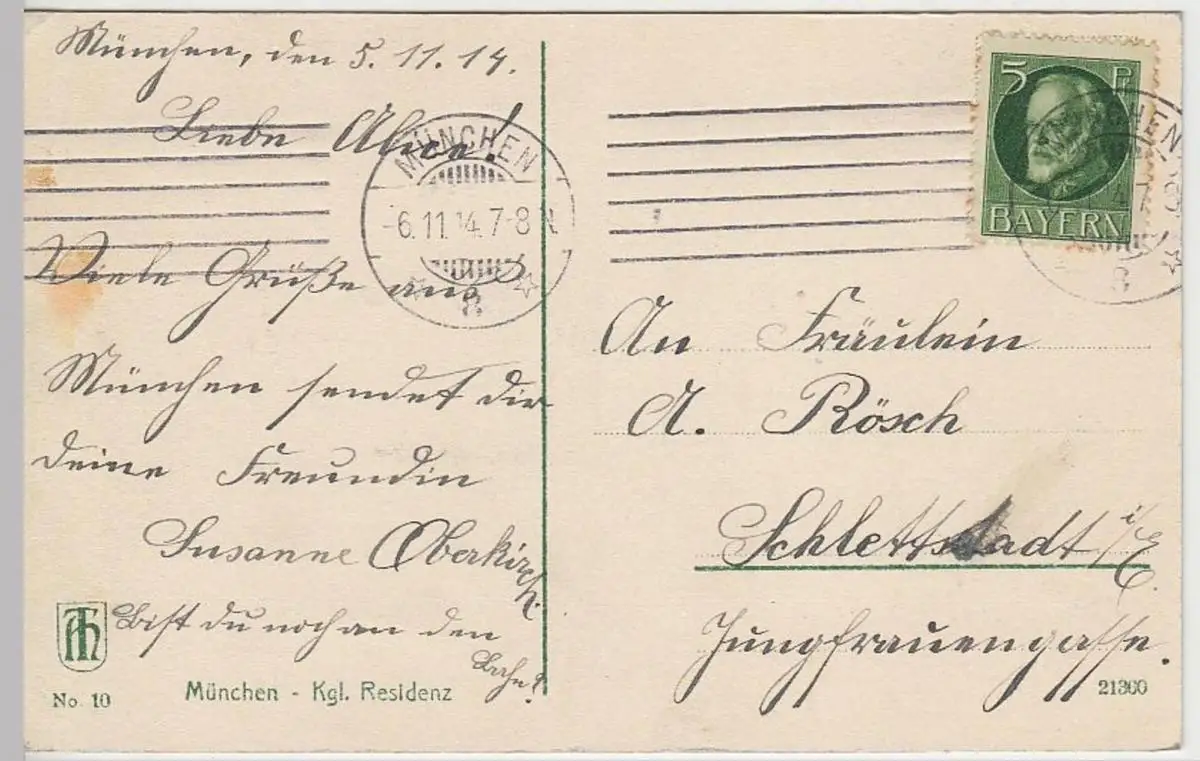 München, den 5. 11. 14.
Liebe Alice!
Viele Grüße aus
München sendet dir
deine Freundin
Susanne Oberkirch.
Bist du noch an den
Bahn?
München - Kgl. Residenz
No. 10
MÜNCHEN
-6.11.14.7-8 N.
8.
5 Pf
BAYERN
An Fräulein
A. Rösch
Schlettstadt i/E.
Jungfrauengasse.
21360